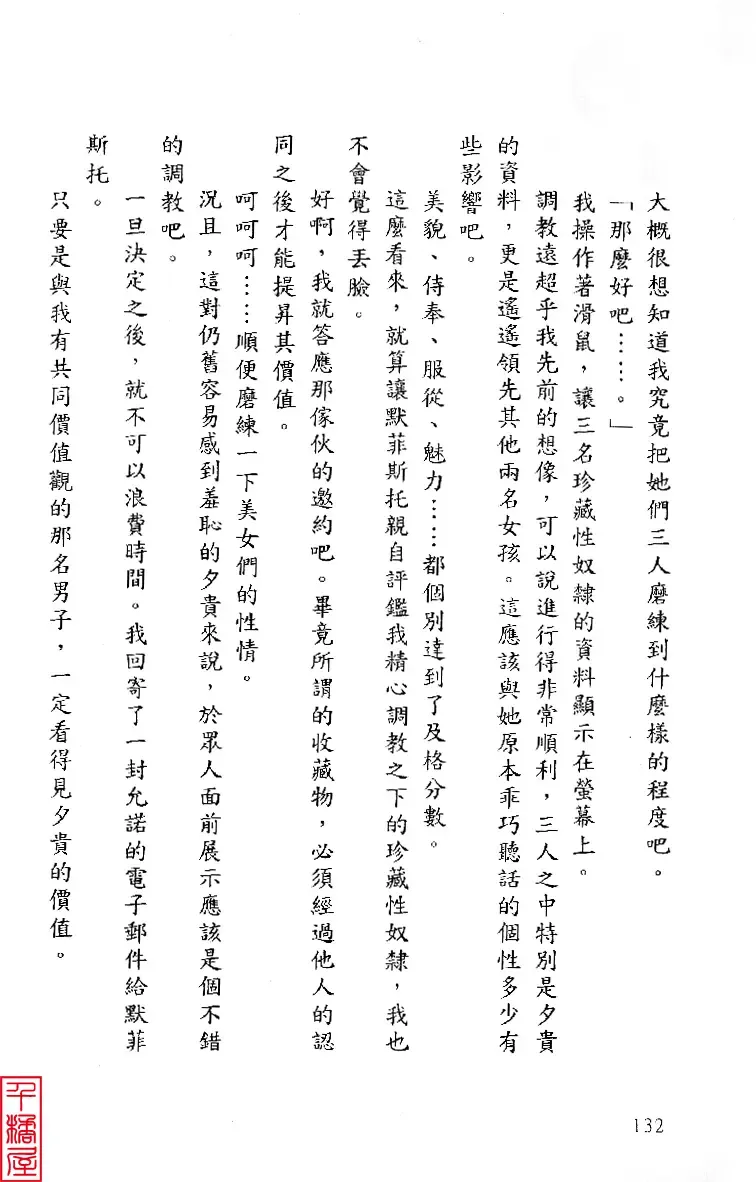 大概很想知道我究竟把她們三人磨練到什麼樣的程度吧。
「那麼好吧……。」
我操作著滑鼠，讓三名珍藏性奴隸的資料顯示在螢幕上。
調教遠超乎我先前的想像，可以說進行得非常順利，三人之中特別是夕貴
的資料，更是遙遙領先其他兩名女孩。這應該與她原本乖巧聽話的個性多少有
些影響吧。
美貌、侍奉、服從、魅力……都個別達到了及格分數。
這麼看來，就算讓默菲斯托親自評鑑我精心調教之下的珍藏性奴隸，我也
不會覺得丟臉。
好啊，我就答應那傢伙的邀約吧。畢竟所謂的收藏物，必須經過他人的認
同之後才能提昇其價值。
呵呵呵……順便磨練一下美女們的性情。
況且，這對仍舊容易感到羞恥的夕貴來說，於眾人面前展示應該是個不錯
的調教吧。
一旦決定之後，就不可以浪費時間。我回寄了一封允諾的電子郵件給默菲
斯托。
只要是與我有共同價值觀的那名男子，一定看得見夕貴的價值。
132